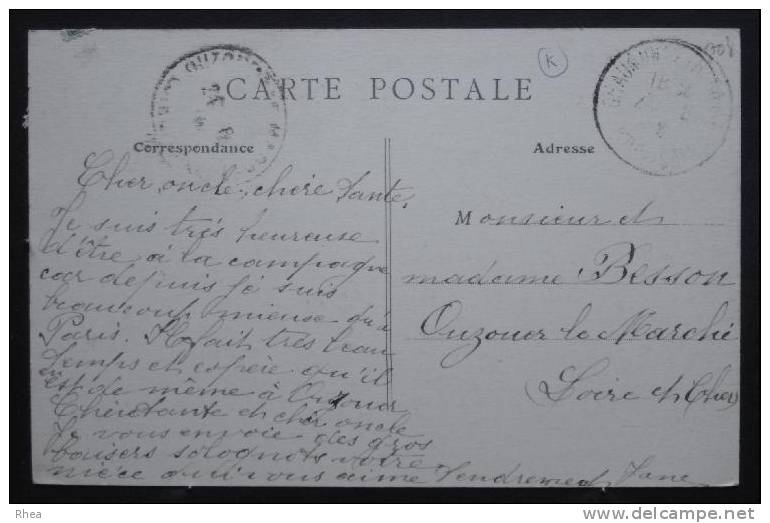 CARTE POSTALE
Correspondance
Adresse
K
Cher oncle, chère Tante,
Je suis très heureuse
d'être à la campagne
car depuis je suis
beaucoup mieuse qu'à
Paris. Il fait très beau
temps et espère qu'il
est de même à Ouzouer
Chère tante et cher oncle
Je vous envoie des gros
baisers solognots votre
nièce qui vous aime tendrement Jane
Monsieur et
madame Besson
Ouzouer le Marché
(Loire et Cher)
Rhea
delcampe.net